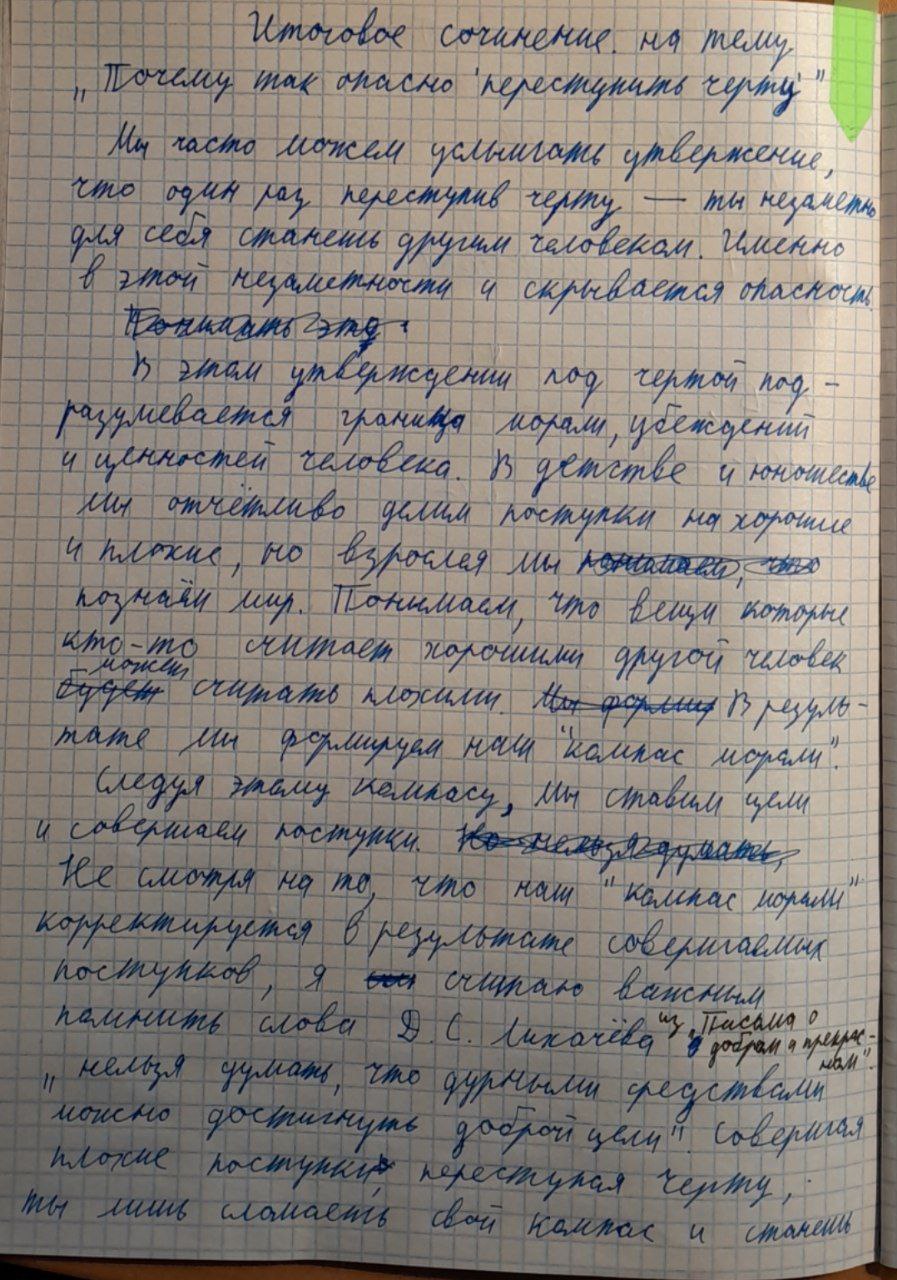 Итоговое сочинение на тему
„Почему так опасно 'переступить черту'"
Мы часто можем услышать утвержение,
что один раз переступив черту — ты незаметно
для себя станешь другим человеком. Именно
в этой незаметности и скрывается опасность.
Понимать это
В этом утверждении под чертой под-
разумевается граница морали, убеждений
и ценностей человека. В детстве и юношестве
мы отчётливо делим поступки на хорошие
и плохие, но взрослея мы понимаем, что
познаём мир. Понимаем, что вещи которые
кто-то считает хорошими другой человек
может
будет считать плохими. Мы формир В резуль-
тате мы формируем наш "компас морали".
Следуя этому компасу, мы ставим цели
и совершаем поступки. Но нельзя думать,
Не смотря на то, что наш "компас морали"
корректируется в результате совершаемых
поступков, я считаю важным
помнить слова Д. С. Лихачёва из „Письма о
добром и прекрас-
ном".
„нельзя думать, что дурными средствами
можно достигнуть доброй цели". Совершая
плохие поступки, переступая черту,
ты лишь сломаешь свой компас и станешь